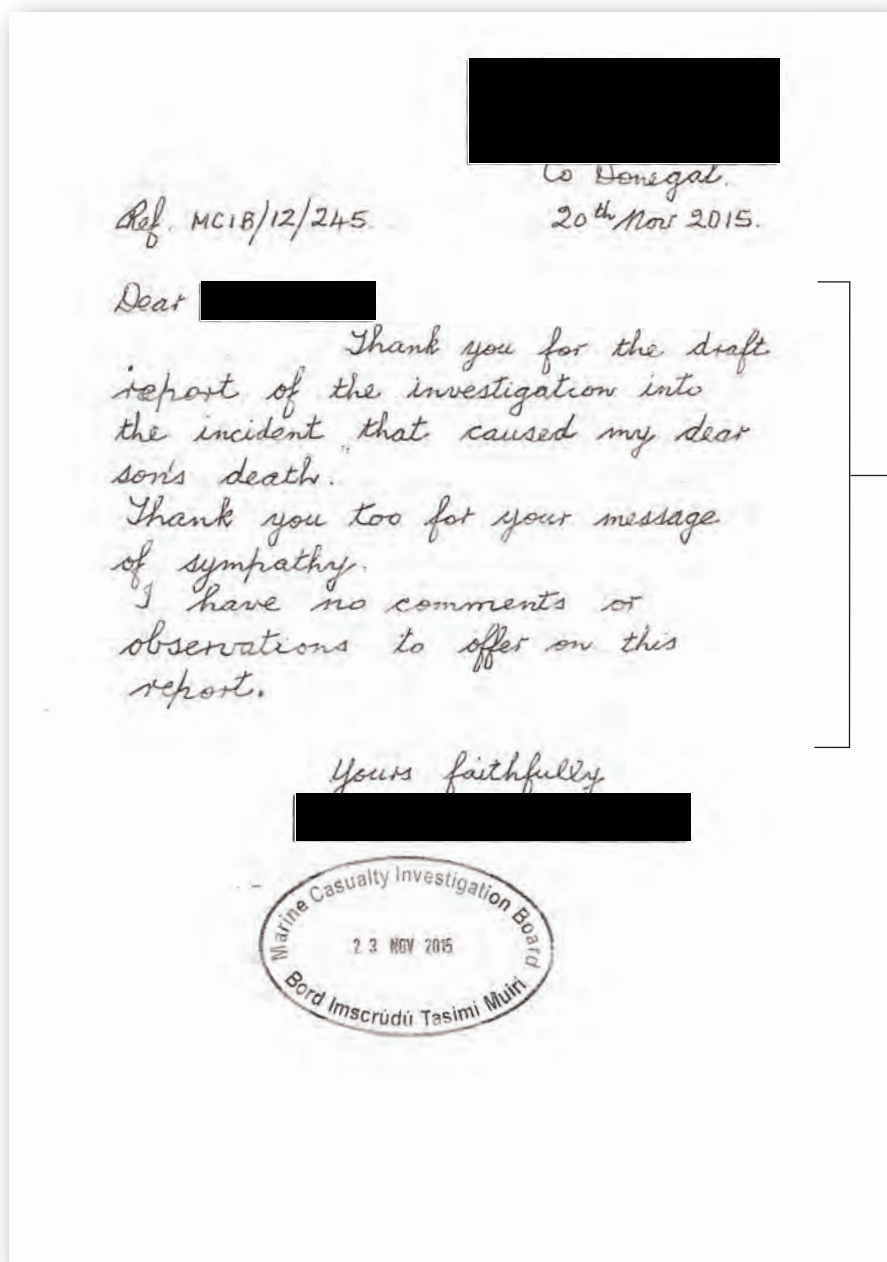 Co Donegal.
Ref. MCIB/12/245.
20th Nov 2015.
Dear
Thank you for the draft
report of the investigation into
the incident that caused my dear
son's death.
Thank you too for your message
of sympathy.
I have no comments or
observations to offer on this
report.
Yours faithfully
Marine Casualty Investigation Board
23 NOV 2015
Bord Imscrúdú Taismí Muirí